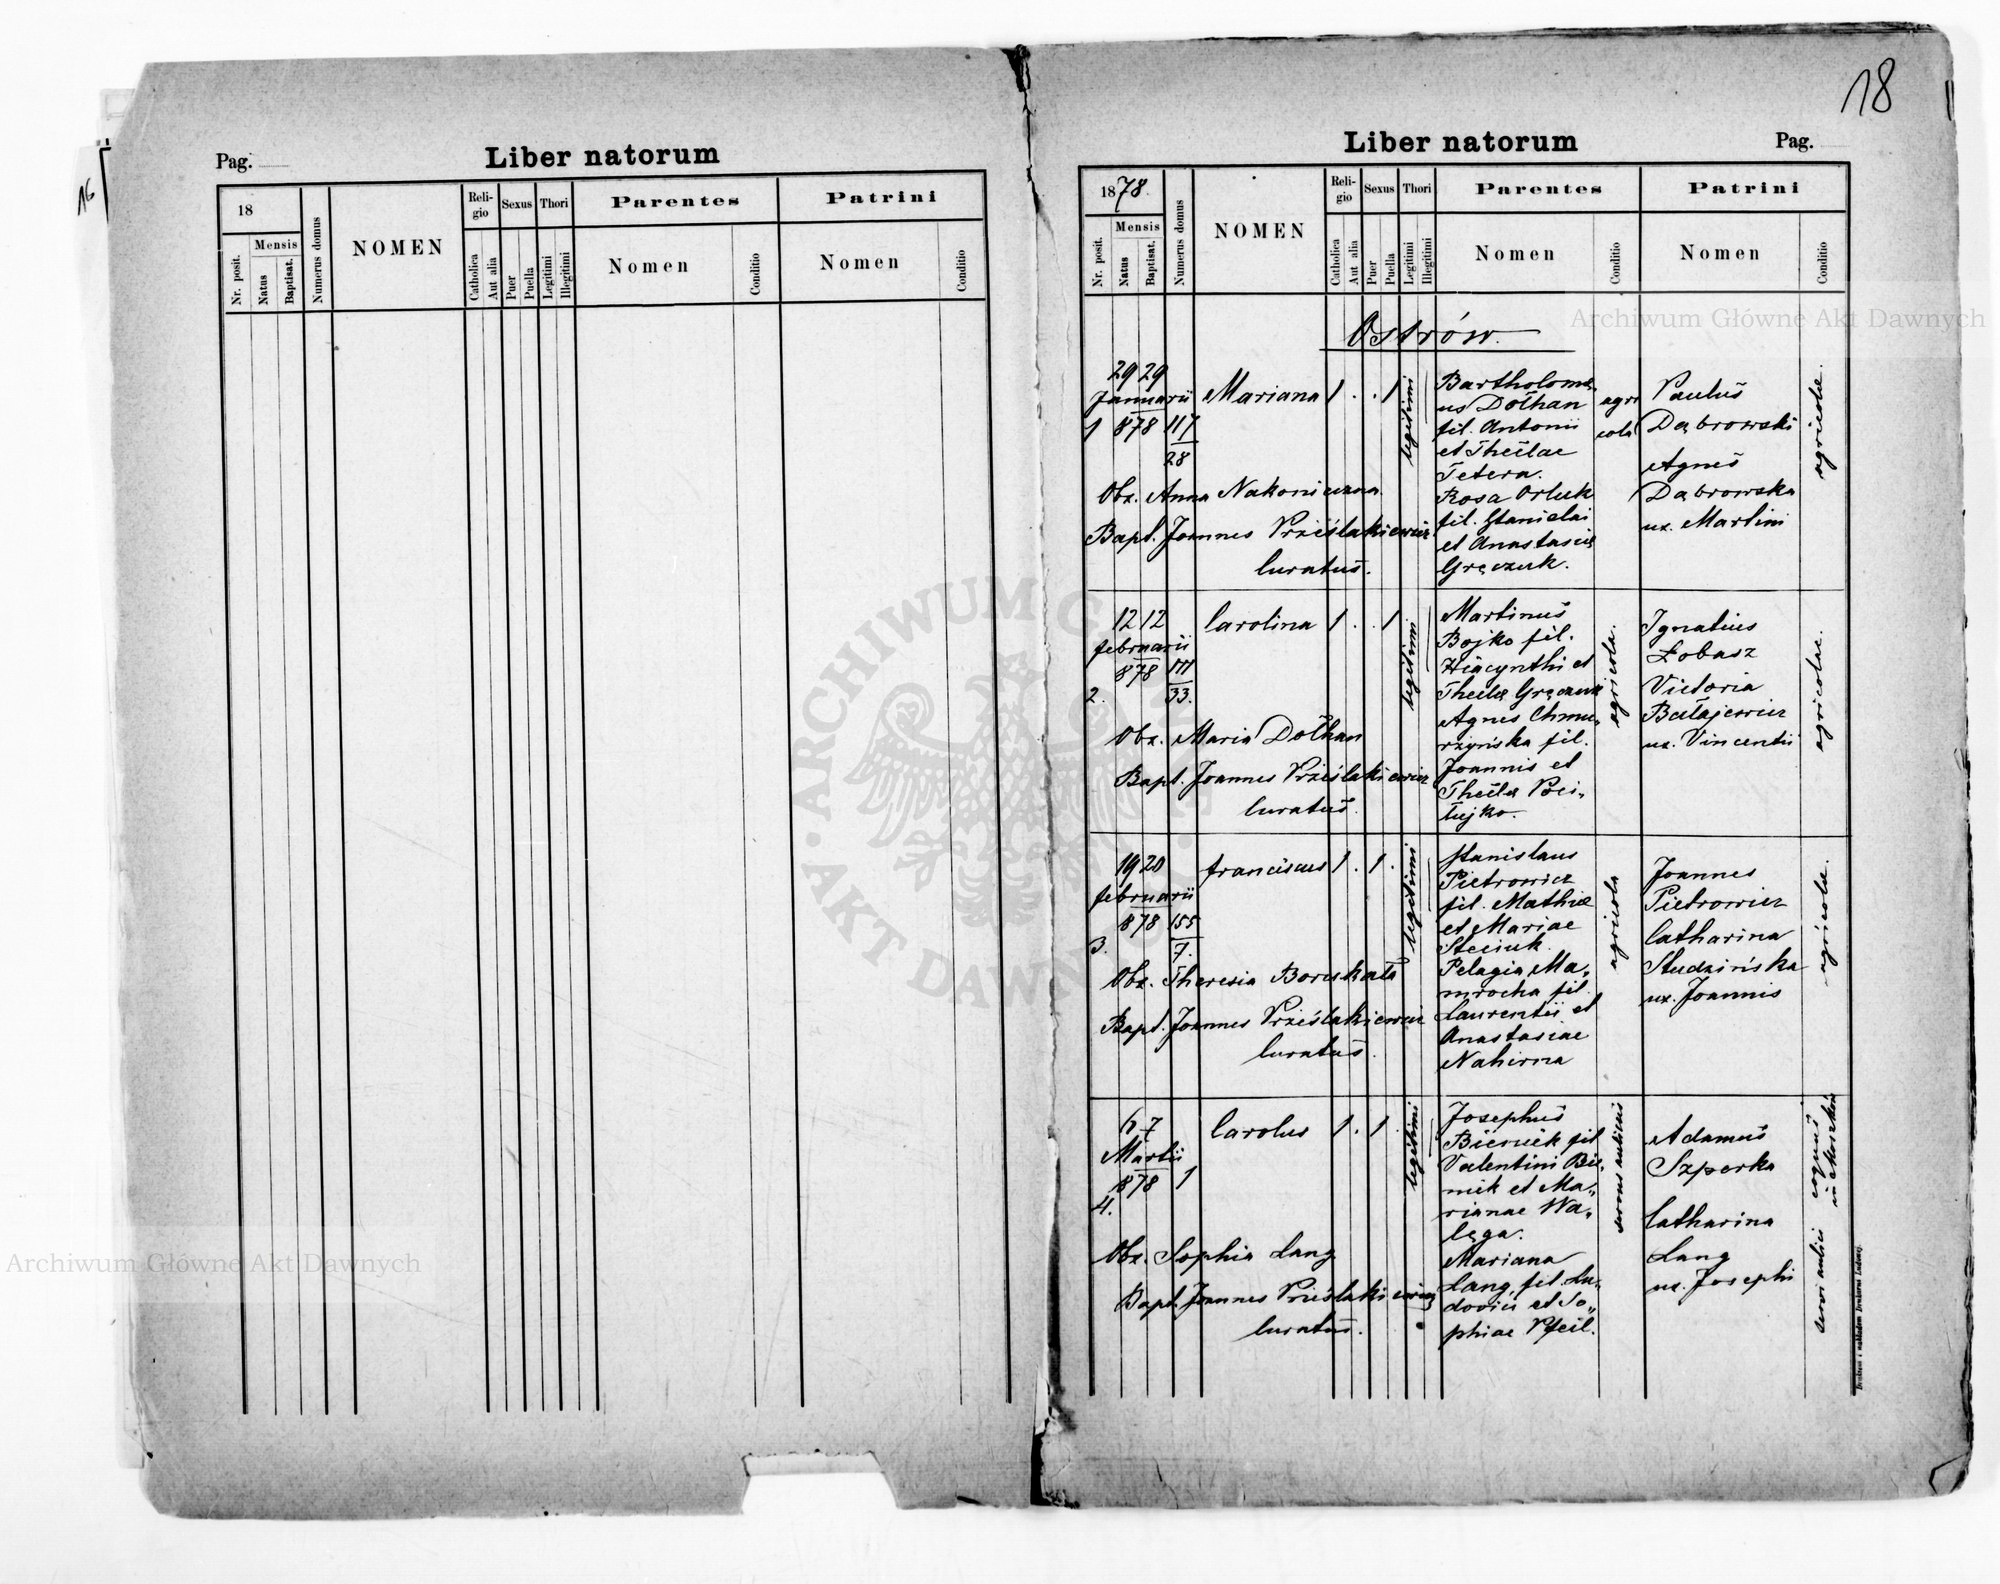 16
Pag.
Liber natorum
18
Numerus domus
NOMEN
Reli-
gio
Sexus
Thori
Parentes
Patrini
Nr. posit.
Mensis
Natus
Baptisat.
Catholica
Aut alia
Puer
Puella
Legitimi
Illegitimi
Nomen
Conditio
Nomen
Conditio
18
Liber natorum
Pag.
1878.
Numerus domus
NOMEN
Reli-
gio
Sexus
Thori
Parentes
Patrini
Nr. posit.
Mensis
Natus
Baptisat.
Catholica
Aut alia
Puer
Puella
Legitimi
Illegitimi
Nomen
Conditio
Nomen
Conditio
Ostrów.
29 29
Januarii
1 878 117
28
Mariana 1 . . 1
legitimi
Bartholome
us Dołhan
fil. Antonii
et Theclae
Tetera.
Rosa Orluk
fil. Stanislai
et Anastasiae
Gręczuk.
agri
cola
Paulus
Dąbrowski
Agnes
Dąbrowska
ux. Martini
agricolae.
Obs. Anna Nakonieczna
Bapt. Joannes Prześlakiewicz
Curatus.
12 12
februarii
878 111
2. 33.
Carolina 1 . . 1
legitimi
Martinus
Bojko fil.
Hiacynthi et
Theclae Gręczuk
Agnes Chmu-
rzyńska fil.
Joannis et
Theclae Poci-
łujko.
agricola.
Ignatius
Łobasz
Victoria
Bałajewicz
ux. Vincentii
agricolae.
Obs. Maria Dołhan
Bapt. Joannes Prześlakiewicz
Curatus.
19 20
februarii
878 155
3. 7.
Franciscus 1 . 1 .
legitimi
Stanislaus
Pietrowicz
fil. Mathiae
et Mariae
Steciuk.
Pelagia Ma-
mrocha fil.
Laurentii et
Anastasiae
Nahirna
agricola
Joannes
Pietrowicz
Catharina
Studzińska
ux. Joannis
agricolae.
Obs. Theresia
Bapt. Joannes Prześlakiewicz
Curatus.
6 7
Martii
878 1
4.
Carolus 1 . 1 .
legitimi
Josephus
Biernik fil
Valentini Bie-
rnik et Ma-
rianae Wa-
lęga.
Mariana
Lang, fil. Lu-
dovici et So-
phiae Pfeil.
servus aulicus
Adamus
Szperka
Catharina
Lang
ux. Josephi
servi aulici
Obs. Sophia Lang
Bapt. Joannes Prześlakiewicz
Curatus.
Drukiem i nakładem Drukarni Ludowej.
Archiwum Główne Akt Dawnych
Archiwum Główne Akt Dawnych